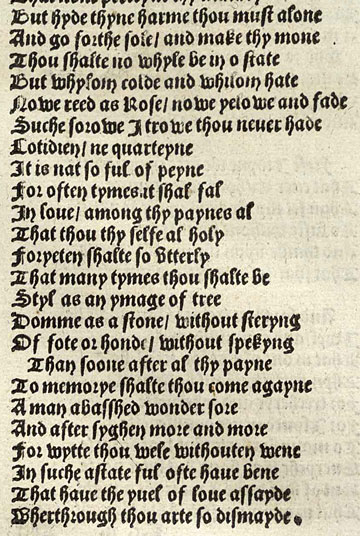 But hyde thyne harme thou must alone
And go forthe sole/ and make thy mone
Thou shalte no whyle be in o state
But whylom colde and whilom hate
Nowe reed as Rose/ nowe yelowe and fade
Suche sorowe I trowe thou neuer hade
Cotidien/ ne quarteyne
It is nat so ful of peyne
For often tymes it shal fal
In loue/ among thy paynes al
That thou thy selfe al holy
Foryeten shalte so vtterly
That many tymes thou shalte be
Styl as an ymage of tree
Domme as a stone/ without steryng
Of fote or honde/ without spekyng
Than soone after al thy payne
To memorye shalte thou come agayne
A man abasshed wonder sore
And after syghen more and more
For wytte thou wele withouten wene
In suche astate ful ofte haue bene
That haue the yuel of loue assayde
Wherthrough thou arte so dismayde.